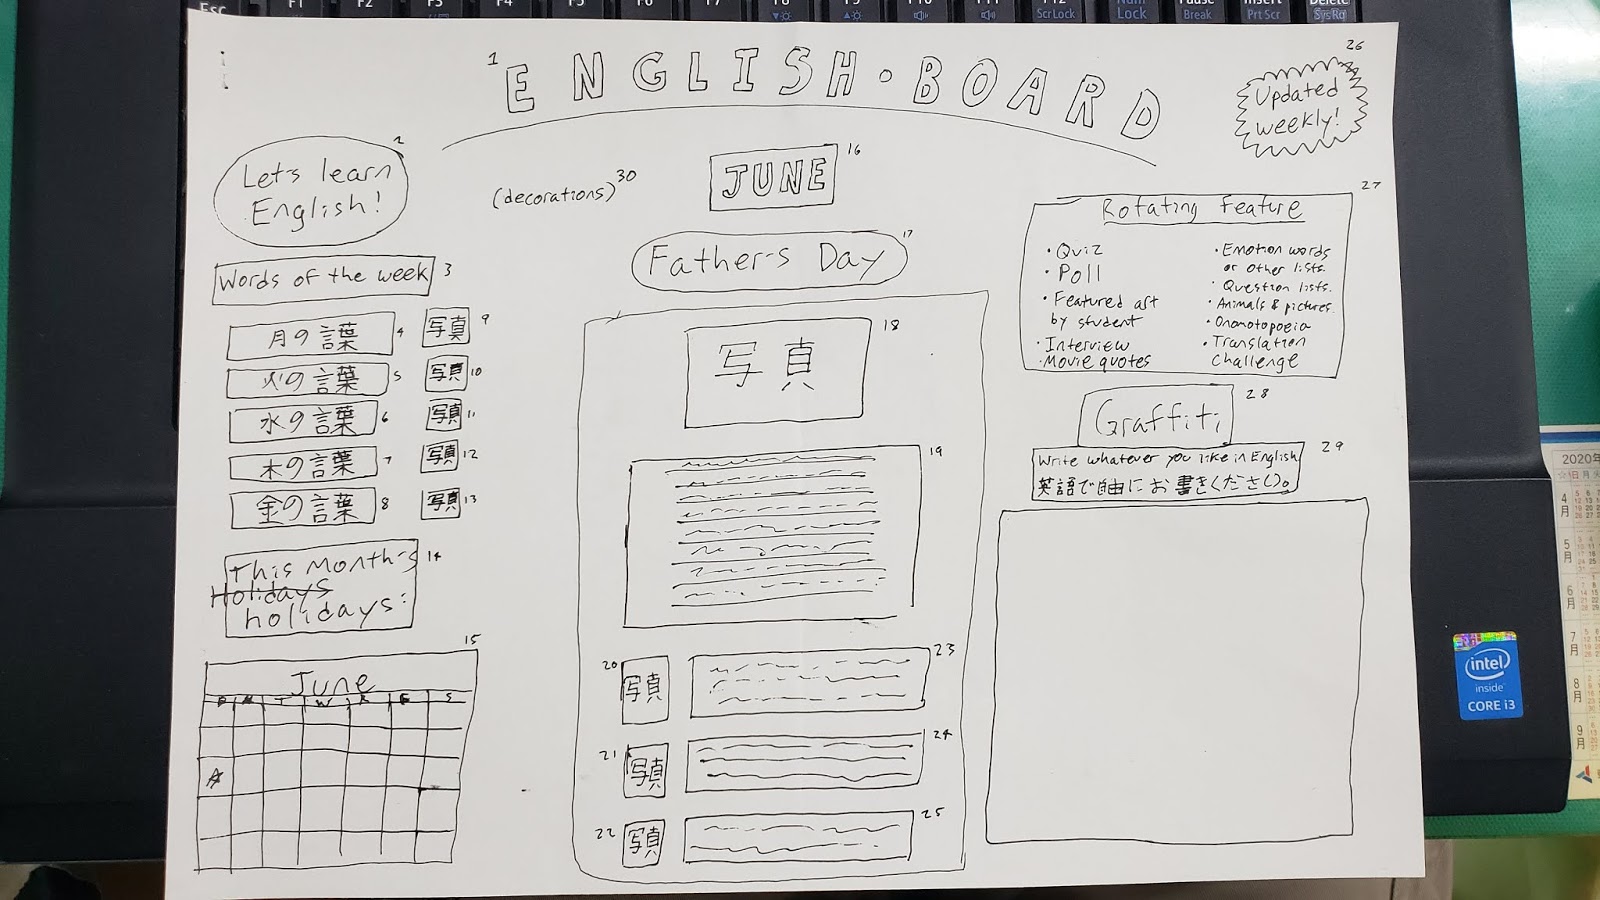 Esc F1 F2 F3 F4 F5 F6 F7 F8 F9 F10 F11 F12 Num Pause Insert Delete
ScrLock Lock Break PrtScr SysRq
1 ENGLISH・BOARD
26
Updated
weekly!
2
Let's learn
English!
Words of the week 3
月の言葉 4 写真 9
火の言葉 5 写真 10
水の言葉 6 写真 11
木の言葉 7 写真 12
金の言葉 8 写真 13
This Month's 14
Holidays
holidays:
15
June
T W F S
(decorations) 30
JUNE 16
Father's Day 17
写真 18
19
20 写真 23
21 写真 24
22 写真 25
27
Rotating Feature
・Quiz
・Poll
・Featured art
by student
・Interview
・Movie quotes
・Emotion words
or other lists.
・Question lists.
・Animals & pictures.
・Onomotopoeia
・Translation
challenge
Graffiti 28
Write whatever you like in English 29
英語で自由にお書きください。
2020年
日 月 火
4月
5月
6月
7月
8月
9月
intel
inside
CORE i3